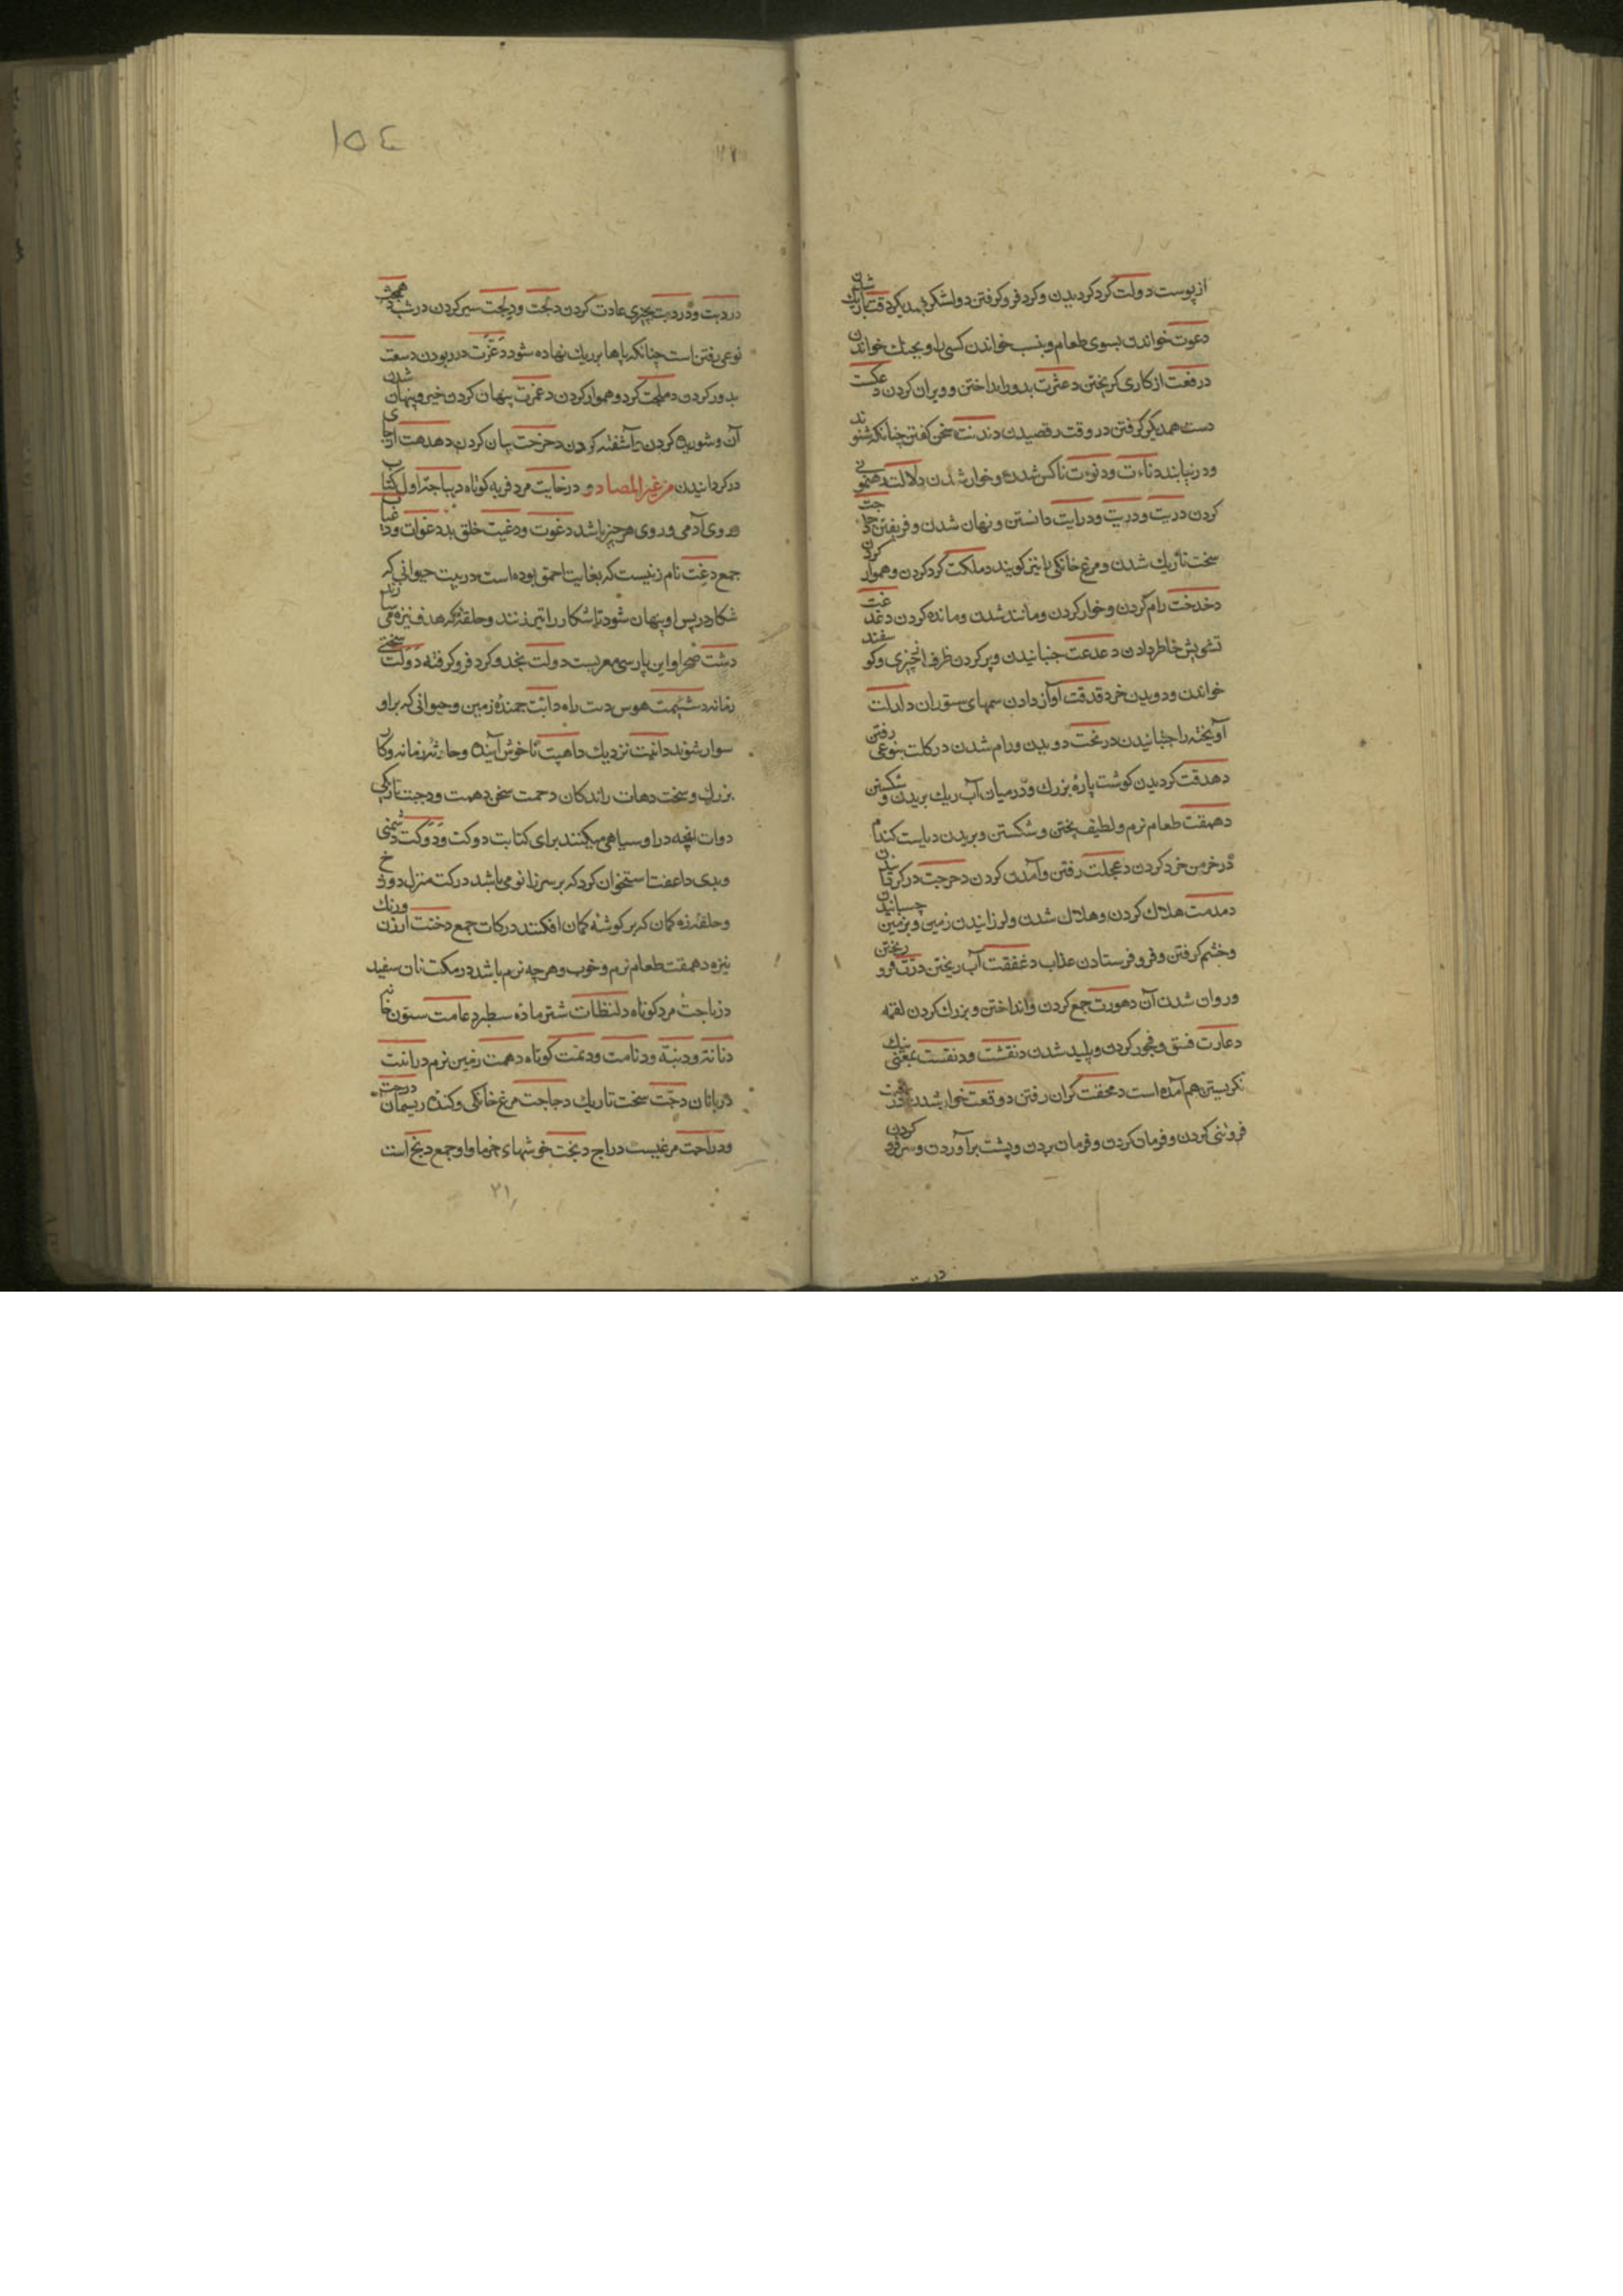 از پوست دولت گرد گردیدن و گرد فرو گرفتن دو لشکر همدیگر دقت باریك شدن
دعوت خواندن بسوی طعام و بنسب خواندن کسی را و بجنك خواندن
درفعت از کاری گریختن دعثرت بدور انداختن و ویران کردن دعکست
دست همدیگر گرفتن در وقت رقصیدن دندنت سخن گفتن چنانکه شنوند
و در نیابند دناءت و دنوءت ناکس شدن و خوار شدن دلالت رهنمونی
کردن دریت و دریت و درایت دانستن و نهان شدن و فریفتن
سخت تاریك شدن و مرغ خانگی را نیز گویند دملکت گرد کردن و هموار کردن
دخدخت رام کردن و خوار کردن و مانند شدن و مانده کردن دغدغت
تشویش خاطر دادن دعدعت جنبانیدن و پر کردن ظرف از چیزی و گوسفند
خواندن و دویدن خرد دقدقت آواز دادن سمهای ستوران دلدلت
آویخته را جنبانیدن درنخت دویدن و رام شدن درکلت بنوعی رفتن
دهدقت گردیدن گوشت پاره بزرك و در میان آب ریك بریدن و شکستن
دهمقت طعام نرم و لطیف پختن و شکستن و بریدن دیاست گندم
در خرمن خرد کردن دعجلت رفتن و آمدن کردن دحرجت در گردانیدن
دمدمت هلاك کردن و هلاك شدن و لرزانیدن زمین و بزمین چسبانیدن
و خشم گرفتن و فرو فرستادن عذاب دغفقت آب ریختن درّت فرو ریختن
و روان شدن آن دهورت جمع کردن و انداختن و بزرك کردن لقمه
دعارت فسق و فجور کردن و پلید شدن دنقشت و دنقست بمعنی نیك
نگریستن هم آمده است دمحقت گران رفتن دوقعت خوار شدن
فروتنی کردن و فرمان کردن و فرمان بردن و پشت برآوردن و سر فرو کردن
١٥٤
دردبت و دردبت بچیزی عادت کردن دلجت و دلجت سیر کردن در شب
نوعی رفتن است چنانکه پاها بر ریك نهاده شود دغرت در ربودن دسعت
بدور کردن دملجت گرد و هموار کردن دغمرت پنهان کردن خبر و پنهان شدن
آن و شوریده کردن و آشفته کردن دحزحت بیان کردن دهدهت از جای
در گردانیدن من غیر المصادر و درخایت مرد فربه کوتاه دیباجة اول کتاب
و روی آدمی و روی هر چیز باشد دغوت و دغیت خلق بد دغوات و دغیات
جمع دغت نام زنیست که بغایت احمق بوده است دریت حیوانی که
شکار در پس او پنهان شود تا شکار را تیر زنند و حلقه که هدف نیزه می سازند
دشت صحرا و این پارسی معربست دولت بخد و گرد فرو گرفته دولت سختی
زمانه دشیمت هوس دبت راه دابّت جمنده زمین و حیوانی که بر او
سوار شوند دانیت نزدیك داهیت ناخوش آینده و حادثه زمانه و کار
بزرك و سخت دهات رانندکان دحمت سخن دهمت و دجت تاریکی
دوات آنچه در او سیاهی میکنند برای کتابت دوکت و دوکت دشمنی
و بدی داعفت استخوان گرد که بر سر زانو می باشد درکت منزل دوزخ
و حلقه زه کمان که بر گوشه کمان افکنند درکات جمع دخنت ارزن و رنك
نیزه دهمقت طعام نرم و خوب و هر چه نرم باشد درمکت نان سفید
دزباجت مرد کوتاه دلنظات شتر ماده سطبر دعامت ستون خانه
دنانة و دنبة و دنامت و دنمت کوتاه دهمت زمین نرم درانت
دربانان دجّت سخت تاریك دجاجت مرغ خانگی و کنده ریسمان درجت
و دراجت مرغیست دراج دبخت خوشهای خرما و او جمع دبخ است
٢١